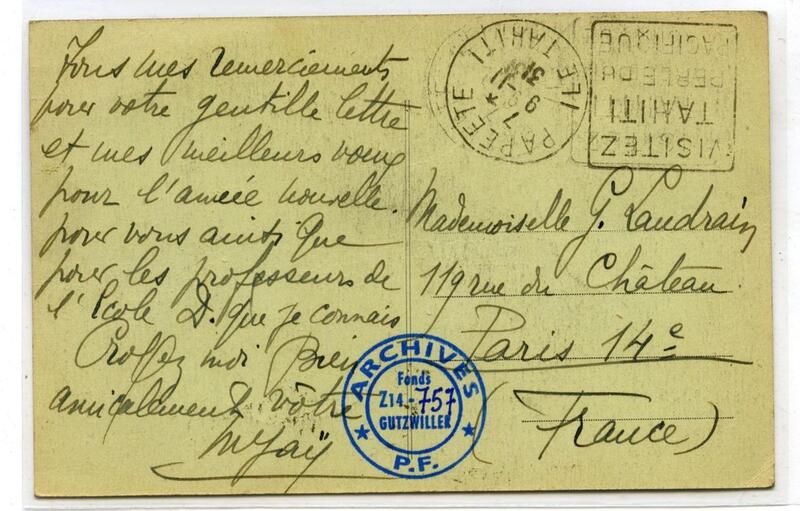 Tous mes remerciements
pour votre gentille lettre
et mes meilleurs voeux
pour l'année nouvelle.
pour vous ainsi que
pour les professeurs de
l'Ecole D. que je connais
Croyez moi Bien
amicalement vôtre
Mademoiselle G. Landrain
119 rue du Château.
Paris 14e
(France)
PAPEETE * ILE TAHITI
31
VISITEZ
TAHITI
PERLE DU
PACIFIQUE
ARCHIVES
Fonds
Z14.-757
GUTZWILLER
P.F.